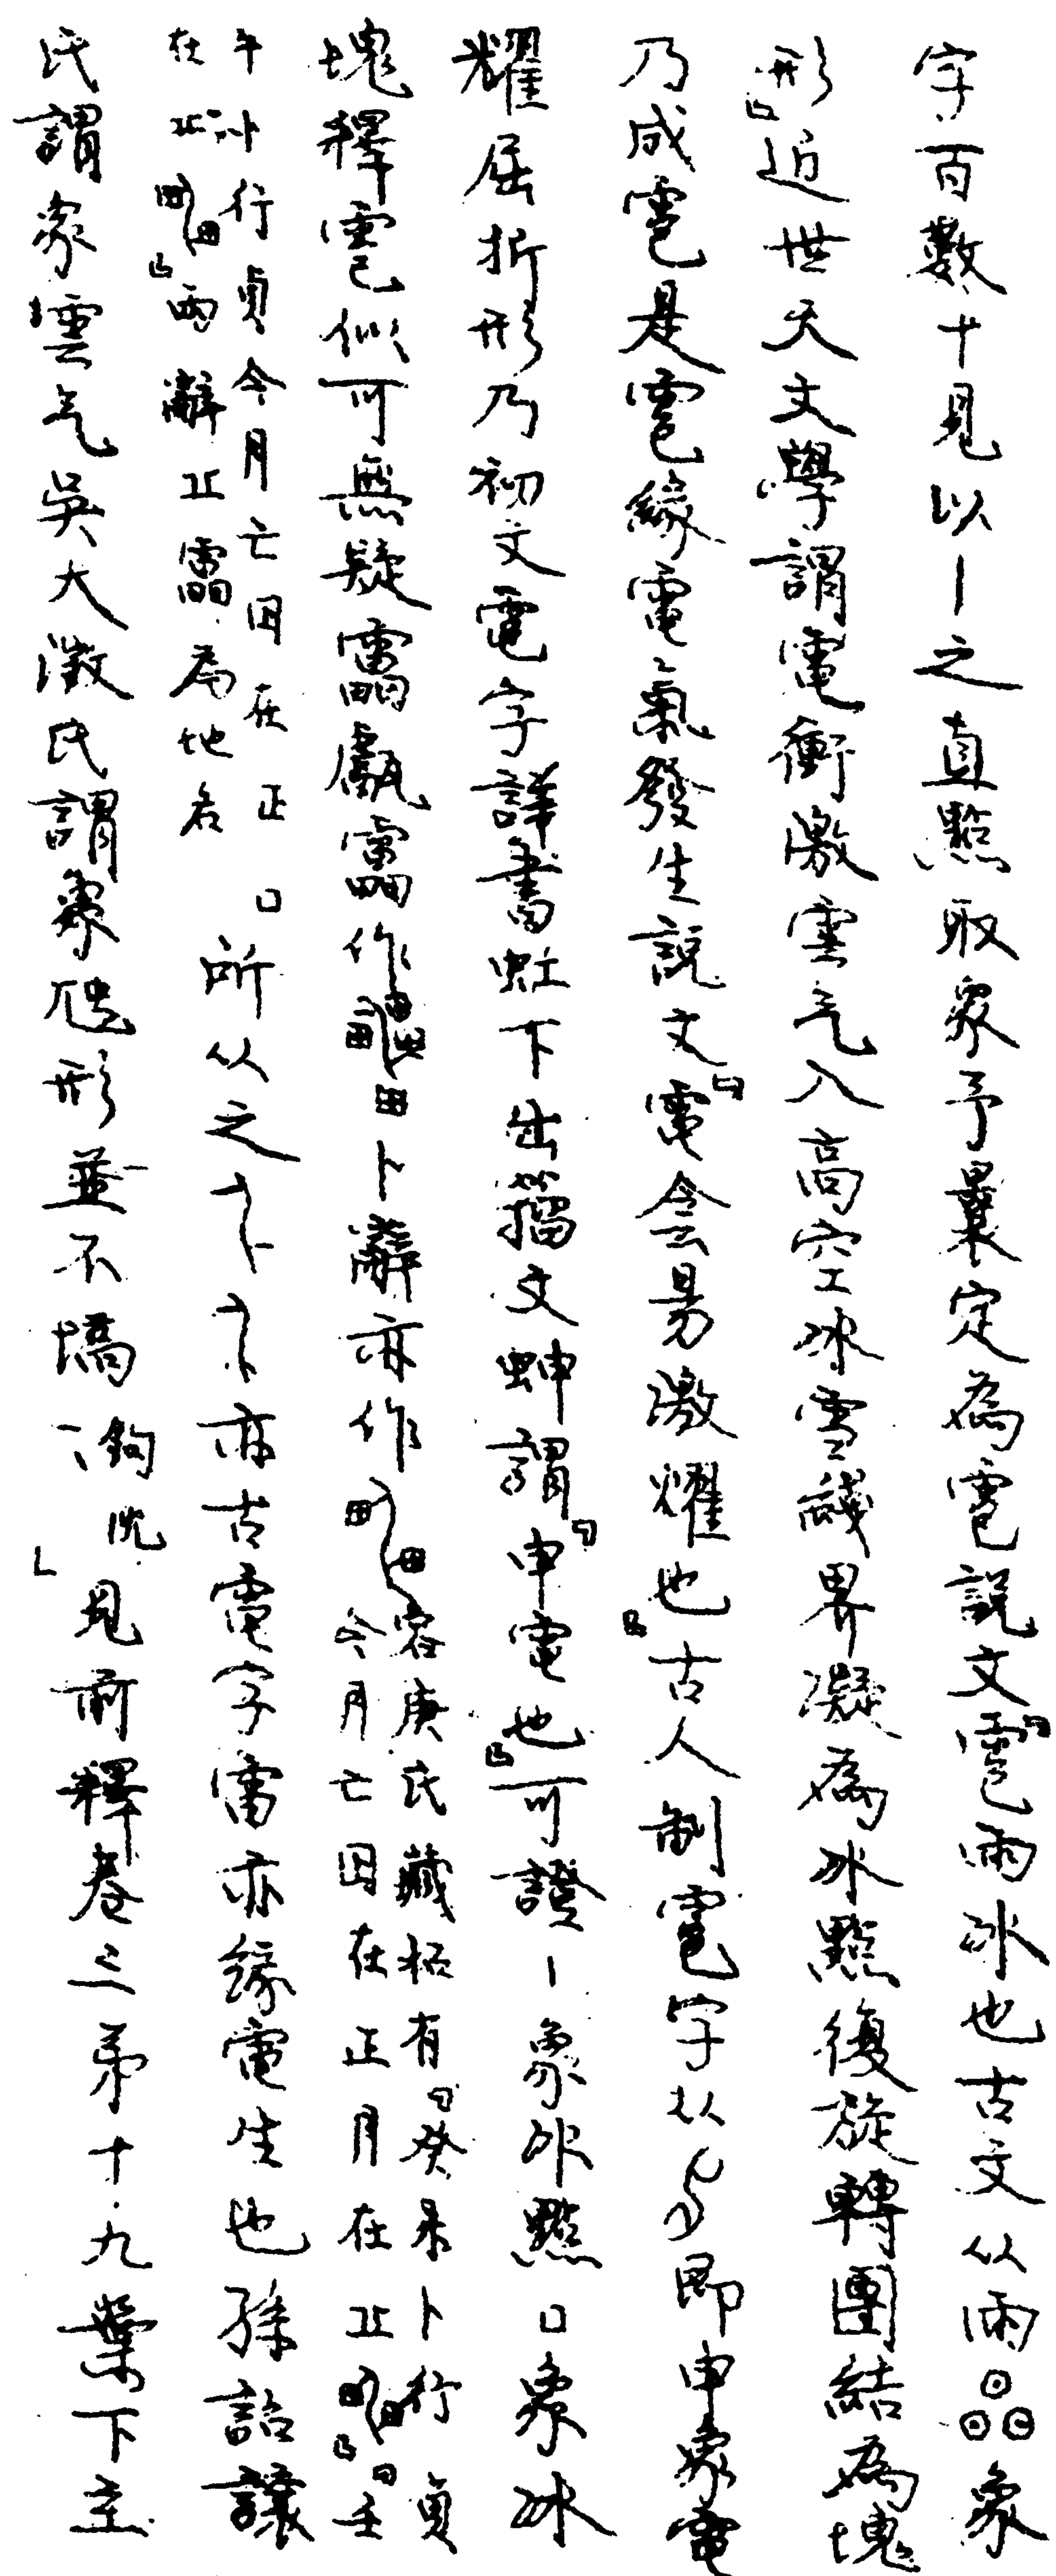 字百數十見以丨之直點取象予曩定為雹說文「雹雨冰也古文从雨象
形」近世天文學謂電衝激雲气入高空冰雪綫界凝為冰點復旋轉團結為塊
乃成雹是雹緣電氣發生說文「電侌昜激燿也」古人制雹字从即申象電
燿屈折形乃初文電字譁書虹下出籀文䖝申謂「申電也」可證丨象小點口象冰
塊釋雹似可無疑靁甗靁作卜辭亦作容庚氏藏柘有「癸未卜行貞
今月亡囚在正月在」「壬
午卜行貞今月亡囚在正口
在」兩辭靁為地名所从之亦古電字雷亦緣電生也孫詒讓
氏謂象雲气吳大澂氏謂象虺形並不塙鉤沈見前釋卷三弟十九葉下主